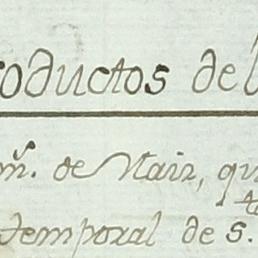 oductos de
m̃. de Nair, qu
temporal de S.